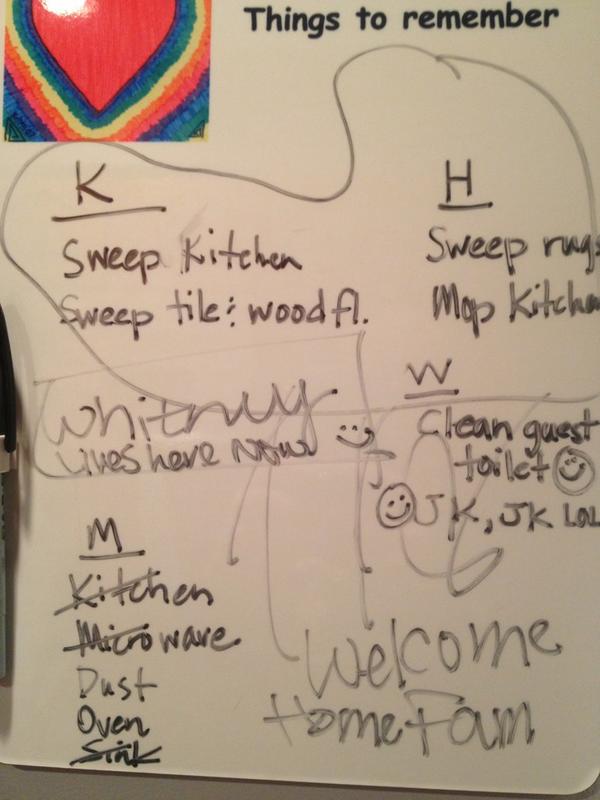 Things to remember
K
Sweep Kitchen
Sweep tile & wood fl.
H
Sweep rugs
Mop Kitchen
Whitney
Lives here now
W
Clean guest
toilet
JK, JK LOL
M
Kitchen
Microwave
Dust
Oven
Sink
Welcome
Home Fam